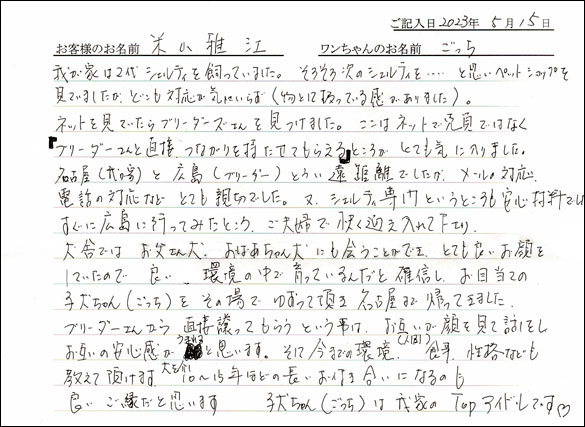 ご記入日 2023年 5月 15日
お客様のお名前 米小雅江 ワンちゃんのお名前 ごっち
我が家は2代シェルティを飼っていました。そろそろ次のシェルティを‥‥と思いペットショップを
見ていましたが、どこも対応が気にいらず(物として扱っている感がありました)。
ネットを見ていたらブリーダーズさんを見つけました。ここはネットで売買ではなく
『ブリーダーさんと直接つながりを持たせてもらえる』ところがとても気に入りました。
名古屋(我が家)と広島(ブリーダー)という遠距離でしたが、メールの対応、
電話の対応などとても親切でした。又、シェルティ専門というところも安心材料で
すぐに広島に行ってみたところ、ご夫婦で快く迎え入れて下り、
犬舎ではお父さん犬、おばあちゃん犬にも会うことができ、とても良いお顔を
していたので良い、環境の中で育っているんだと確信し、お目当ての
子犬ちゃん(ごっち)をその場でゆずって頂き名古屋まで帰ってきました。
ブリーダーさんから直接譲ってもらうという事は、お互いが顔を見て話をし
お互いの安心感がうまれると思います。そして今までの環境、(人間)食事、性格なども
教えて頂けます。犬を介し10〜15年ほどの長いお付き合いになるのも
良いご縁だと思います 子犬ちゃん(ごっち)は我家のTopアイドルです♡